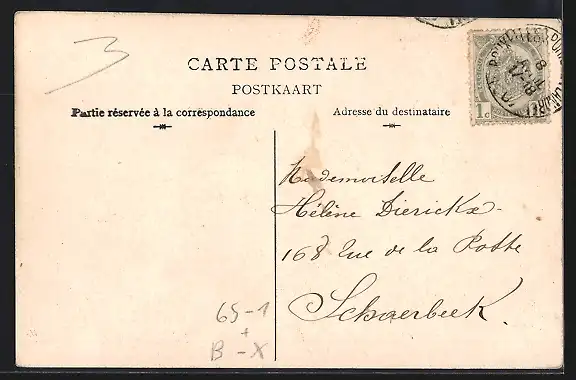 3
CARTE POSTALE
POSTKAART
Partie réservée à la correspondance
Adresse du destinataire
1c
Mademoiselle
Hélène Dierickx
168 Rue de la Poste
Schaerbeek.
65-1
+
B-X